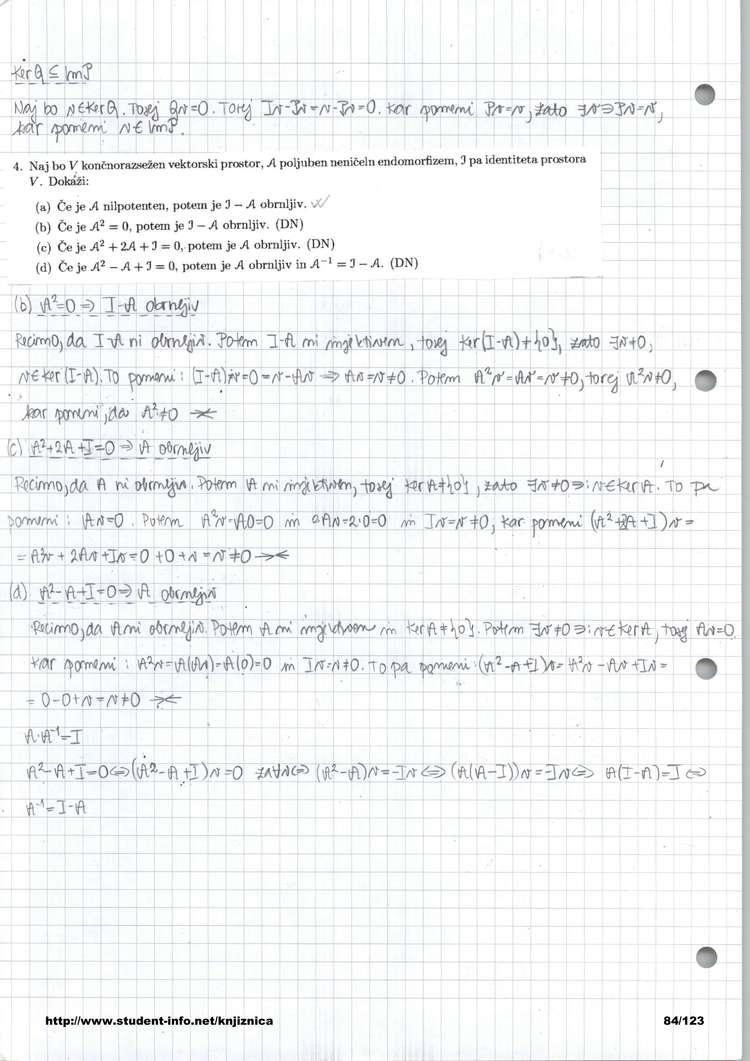 ker Q ⊆ Im P
Naj bo v ∈ ker Q. Torej Qv=0. Torej Iv-Pv=v-Pv=0. kar pomeni Pv=v, zato ∃v∋Pv=v,
kar pomeni v ∈ Im P.
4. Naj bo V končnorazsežen vektorski prostor, A poljuben neničeln endomorfizem, I pa identiteta prostora
V. Dokaži:
(a) Če je A nilpotenten, potem je I − A obrnljiv.
(b) Če je A² = 0, potem je I − A obrnljiv. (DN)
(c) Če je A² + 2A + I = 0, potem je A obrnljiv. (DN)
(d) Če je A² − A + I = 0, potem je A obrnljiv in A⁻¹ = I − A. (DN)
(b) A²=0 ⇒ I-A obrnljiv
Recimo, da I-A ni obrnljiv. Potem I-A ni injektiven, torej ker(I-A)≠{0}, zato ∃v≠0,
v∈ker(I-A). To pomeni: (I-A)v=0=v-Av ⇒ Av=v≠0. Potem A²v=Av=v≠0, torej A²v≠0,
kar pomeni, da A²≠0 →←
(c) A²+2A+I=0 ⇒ A obrnljiv
Recimo, da A ni obrnljiv. Potem A ni injektiven, torej ker A≠{0}, zato ∃v≠0∋: v∈ker A. To pa
pomeni: Av=0. Potem A²v=A0=0 in 2Av=2·0=0 in Iv=v≠0, kar pomeni (A²+2A+I)v=
= A²v + 2Av + Iv = 0 + 0 + v = v≠0 →←
(d) A²-A+I=0 ⇒ A obrnljiv
Recimo, da A ni obrnljiv. Potem A ni injektiven in ker A≠{0}. Potem ∃v≠0∋: v∈ker A, torej Av=0.
kar pomeni: A²v=A(Av)=A(0)=0 in Iv=v≠0. To pa pomeni: (A²-A+I)v= A²v-Av+Iv=
= 0-0+v=v≠0 →←
A·A⁻¹=I
A²-A+I=0 ⇔ (A²-A+I)v=0 za ∀v ⇔ (A²-A)v=-Iv ⇔ (A(A-I))v=-Iv ⇔ A(I-A)=I ⇔
A⁻¹=I-A
http://www.student-info.net/knjiznica
84/123